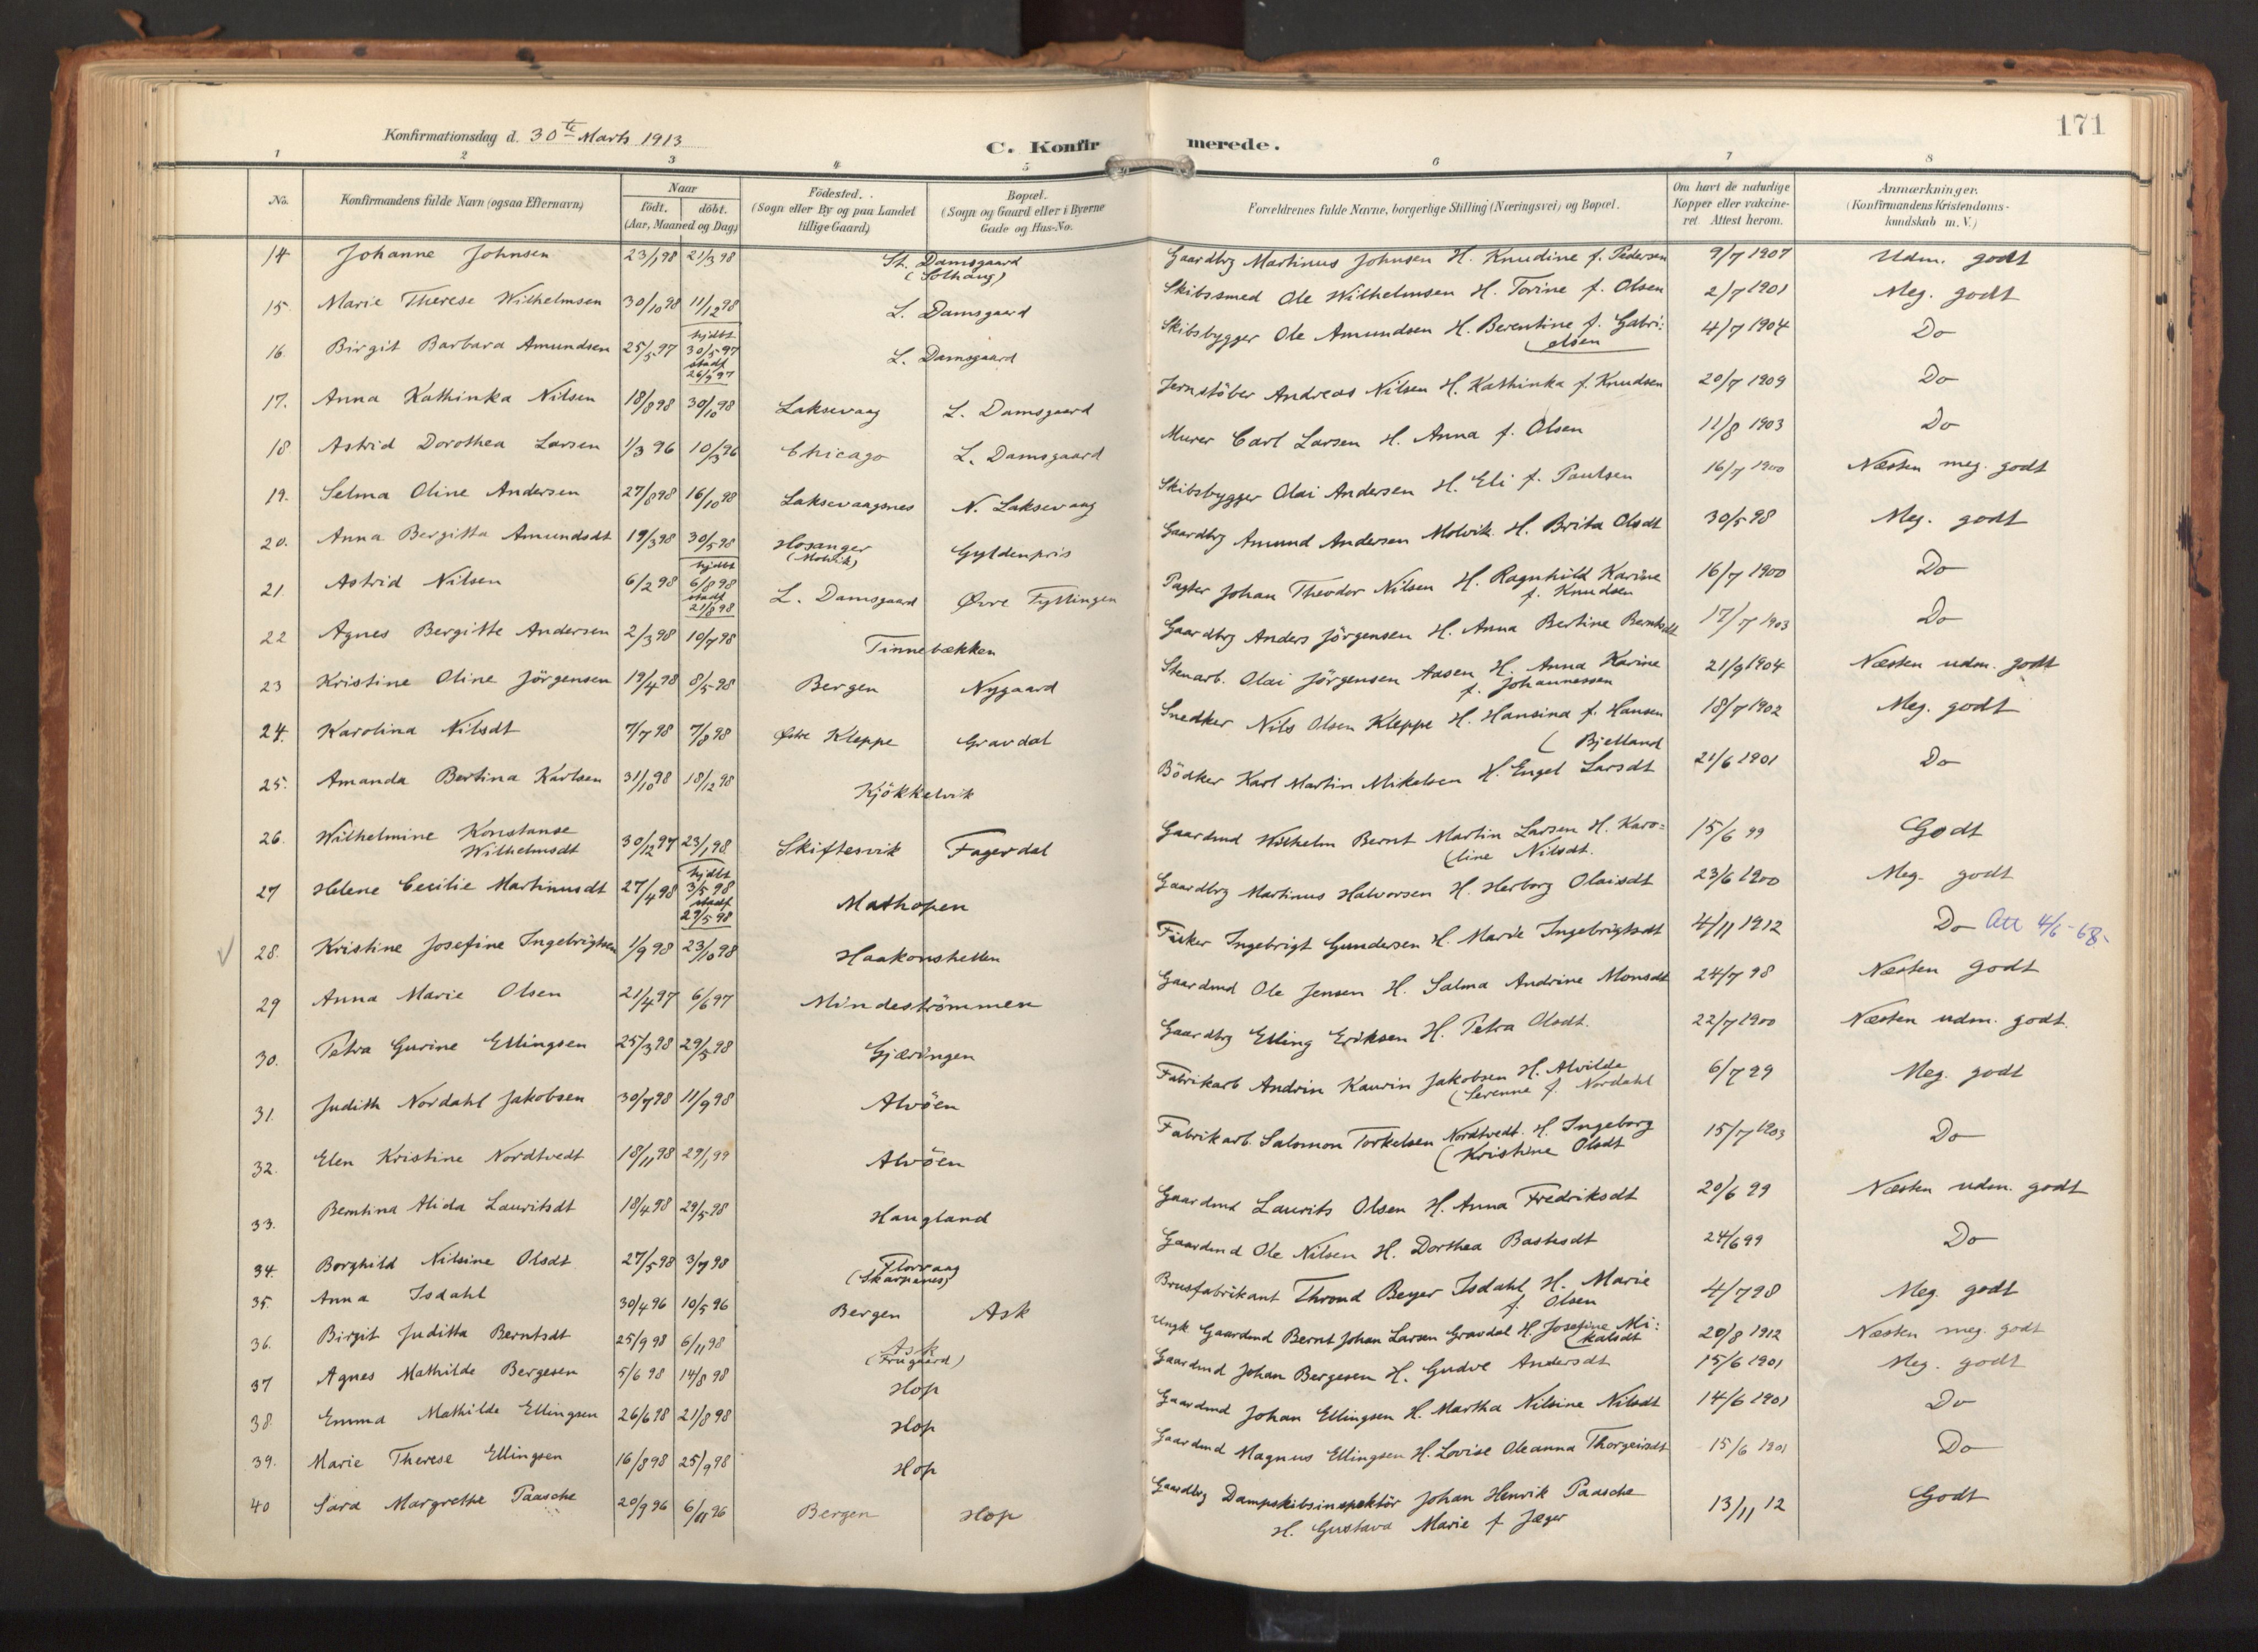 171
Konfirmationsdag d. 30te Marts 1913
C. Konfirmerede.
1 2 3 4 5 6 7 8
No. Konfirmandens fulde Navn (ogsaa Efternavn) Naar födt. döbt. (Aar, Maaned og Dag) Födested. (Sogn eller By og paa Landet tillige Gaard) Bopæl. (Sogn og Gaard eller i Byerne Gade og Hus-No. Forældrenes fulde Navne, borgerlige Stilling (Næringsvei) og Bopæl. Om havt de naturlige Kopper eller vakcineret. Attest herom. Anmærkninger. (Konfirmandens Kristendomskundskab m. V.)
14 Johanne Johnsen 23/1 98 21/3 98 St. Damsgaard (Solhaug) Gaardbrg Martinus Johnsen H. Knudine f. Pedersen 9/7 1907 Udm. godt
15. Marie Therese Wilhelmsen 30/10 98 11/12 98 L. Damsgaard Skibssmed Ole Wilhelmsen H. Torine f. Olsen 2/7 1901 Meg. godt
16. Birgit Barbara Amundsen 25/5 97 hjdbt 30/5 97 stadf 26/9 97 L. Damsgaard Skibsbygger Ole Amundsen H. Berentine f. Gabri: (elsen 4/7 1904 Do
17. Anna Kathinka Nilsen 18/8 98 30/10 98 Laksevaag L. Damsgaard Jernstöber Andreas Nilsen H. Kathinka f. Knudsen 20/7 1909 Do
18. Astrid Dorothea Larsen 1/3 96 10/3 96 Chicago L. Damsgaard Murer Carl Larsen H. Anna f. Olsen 11/8 1903 Do
19. Selma Oline Andersen 27/8 98 16/10 98 Laksevaagsnes N. Laksevaag Skibsbygger Olai Andersen H. Eli f. Paulsen 16/7 1900 Næsten meg. godt
20. Anna Bergitta Amundsdt 19/3 98 30/5 98 Hosanger (Molvik) Gyldenpris Gaardbrg Amund Andersen Molvik. H. Brita Olsdt 30/5 98 Meg. godt
21. Astrid Nilsen 6/2 98 hjdbt 6/8 98 stadf 21/8 98 L. Damsgaard Øvre Fyllingen Pagter Johan Theodor Nilsen H. Ragnhild Karine f. Knudsen 16/7 1900 Do
22 Agnes Bergitte Andersen 2/3 98 10/7 98 Tinnebækken Gaardbrg Anders Jörgensen H. Anna Bertine Berntsdt 17/7 1903 Do
23 Kristine Oline Jörgensen 19/4 98 8/5 98 Bergen Nygaard Stenarb. Olai Jörgensen Aasen H. Anna Karine f. Johannessen 21/9 1904 Næsten udm. godt
24. Karolina Nilsdt 7/7 98 7/8 98 Østre Kleppe Gravdal Snedker Nils Olsen Kleppe H. Hansina f. Hansen ( Bjelland 18/7 1902 Meg. godt
25. Amanda Bertina Karlsen 31/10 98 18/12 98 Kjökkelvik Bödker Karl Martin Mikelsen H. Engel Larsdt 21/6 1901 Do
26. Wilhelmine Konstanse Wilhelmsdt 30/12 97 23/1 98 Skiftesvik Fagerdal Gaardmd Wilhelm Bernt Martin Larsen H. Karo= (line Nilsdt. 15/6 99 Godt
27 Helene Cecilie Martinusdt 27/4 98 hjdbt 3/5 98 stadf 29/5 98 Mathopen Gaardbrg Martinus Halvorsen H. Herborg Olaisdt 23/6 1900 Meg. godt
28. Kristine Josefine Ingebrigtsen 1/9 98 23/10 98 Haakonshellen Fisker Ingebrigt Gundersen H. Marie Ingebrigtsdt 4/11 1912 Do Att 4/6-68-
29 Anna Marie Olsen 21/4 97 6/6 97 Mindeströmmen Gaardmd Ole Jensen H. Salma Andrine Monsdt 24/7 98 Næsten godt
30. Petra Gurine Ellingsen 25/3 98 29/5 98 Gjæringen Gaardbrg Elling Eriksen H. Petra Olsdt. 22/7 1900 Næsten udm. godt.
31. Judith Nordahl Jakobsen 30/7 98 11/9 98 Alvöen Fabrikarb Andrin Kaurin Jakobsen H. Alvilde (Serenne f. Nordahl 6/7 99 Meg. godt
32. Elen Kristine Nordtvedt 18/11 98 29/1 99 Alvöen Fabrikarb. Salomon Torkelsen Nordtvedt. H. Ingeborg (Kristine Olsdt 15/7 1903 Do
33. Berntina Alida Lauritsdt 18/4 98 29/5 98 Haugland Gaardmd Laurits Olsen H. Anna Fredriksdt 20/6 99 Næsten udm. godt
34. Borghild Nilsine Olsdt. 27/5 98 3/7 98 Florvaag (Skarpanes) Gaardmd Ole Nilsen H. Dorthea Bastesdt 24/6 99 Do
35. Anna Isdahl 30/4 96 10/5 96 Bergen Ask Brusfabrikant Thrond Beyer Isdahl H. Marie f. Olsen 4/7 98 Meg. godt
36. Birgit Juditta Berntsdt 25/9 98 6/11 98 Ask (Frugaard) Ungk Gaardmd Bernt Johan Larsen Gravdal H. Josefine Mi: (kalsdt 20/8 1912 Næsten meg. godt
37 Agnes Mathilde Bergesen 5/6 98 14/8 98 Hop Gaardmd Johan Bergesen H. Gudve Andersdt 15/6 1901 Meg. godt
38. Emma Mathilde Ellingsen 26/6 98 21/8 98 Hop Gaardmd Johan Ellingsen H. Martha Nilsine Nilsdt 14/6 1901 Do
39. Marie Therese Ellingsen 16/8 98 25/9 98 Hop Gaardmd Magnus Ellingsen H. Lovise Oleanna Thorgeirsdt 15/6 1901 Do
40 Sara Margrethe Paasche 20/9 96 6/11 96 Bergen Hop Gaardbrg Dampskibsinspektör Johan Henrik Paasche H. Gustava Marie f Jæger 13/11 12 Godt